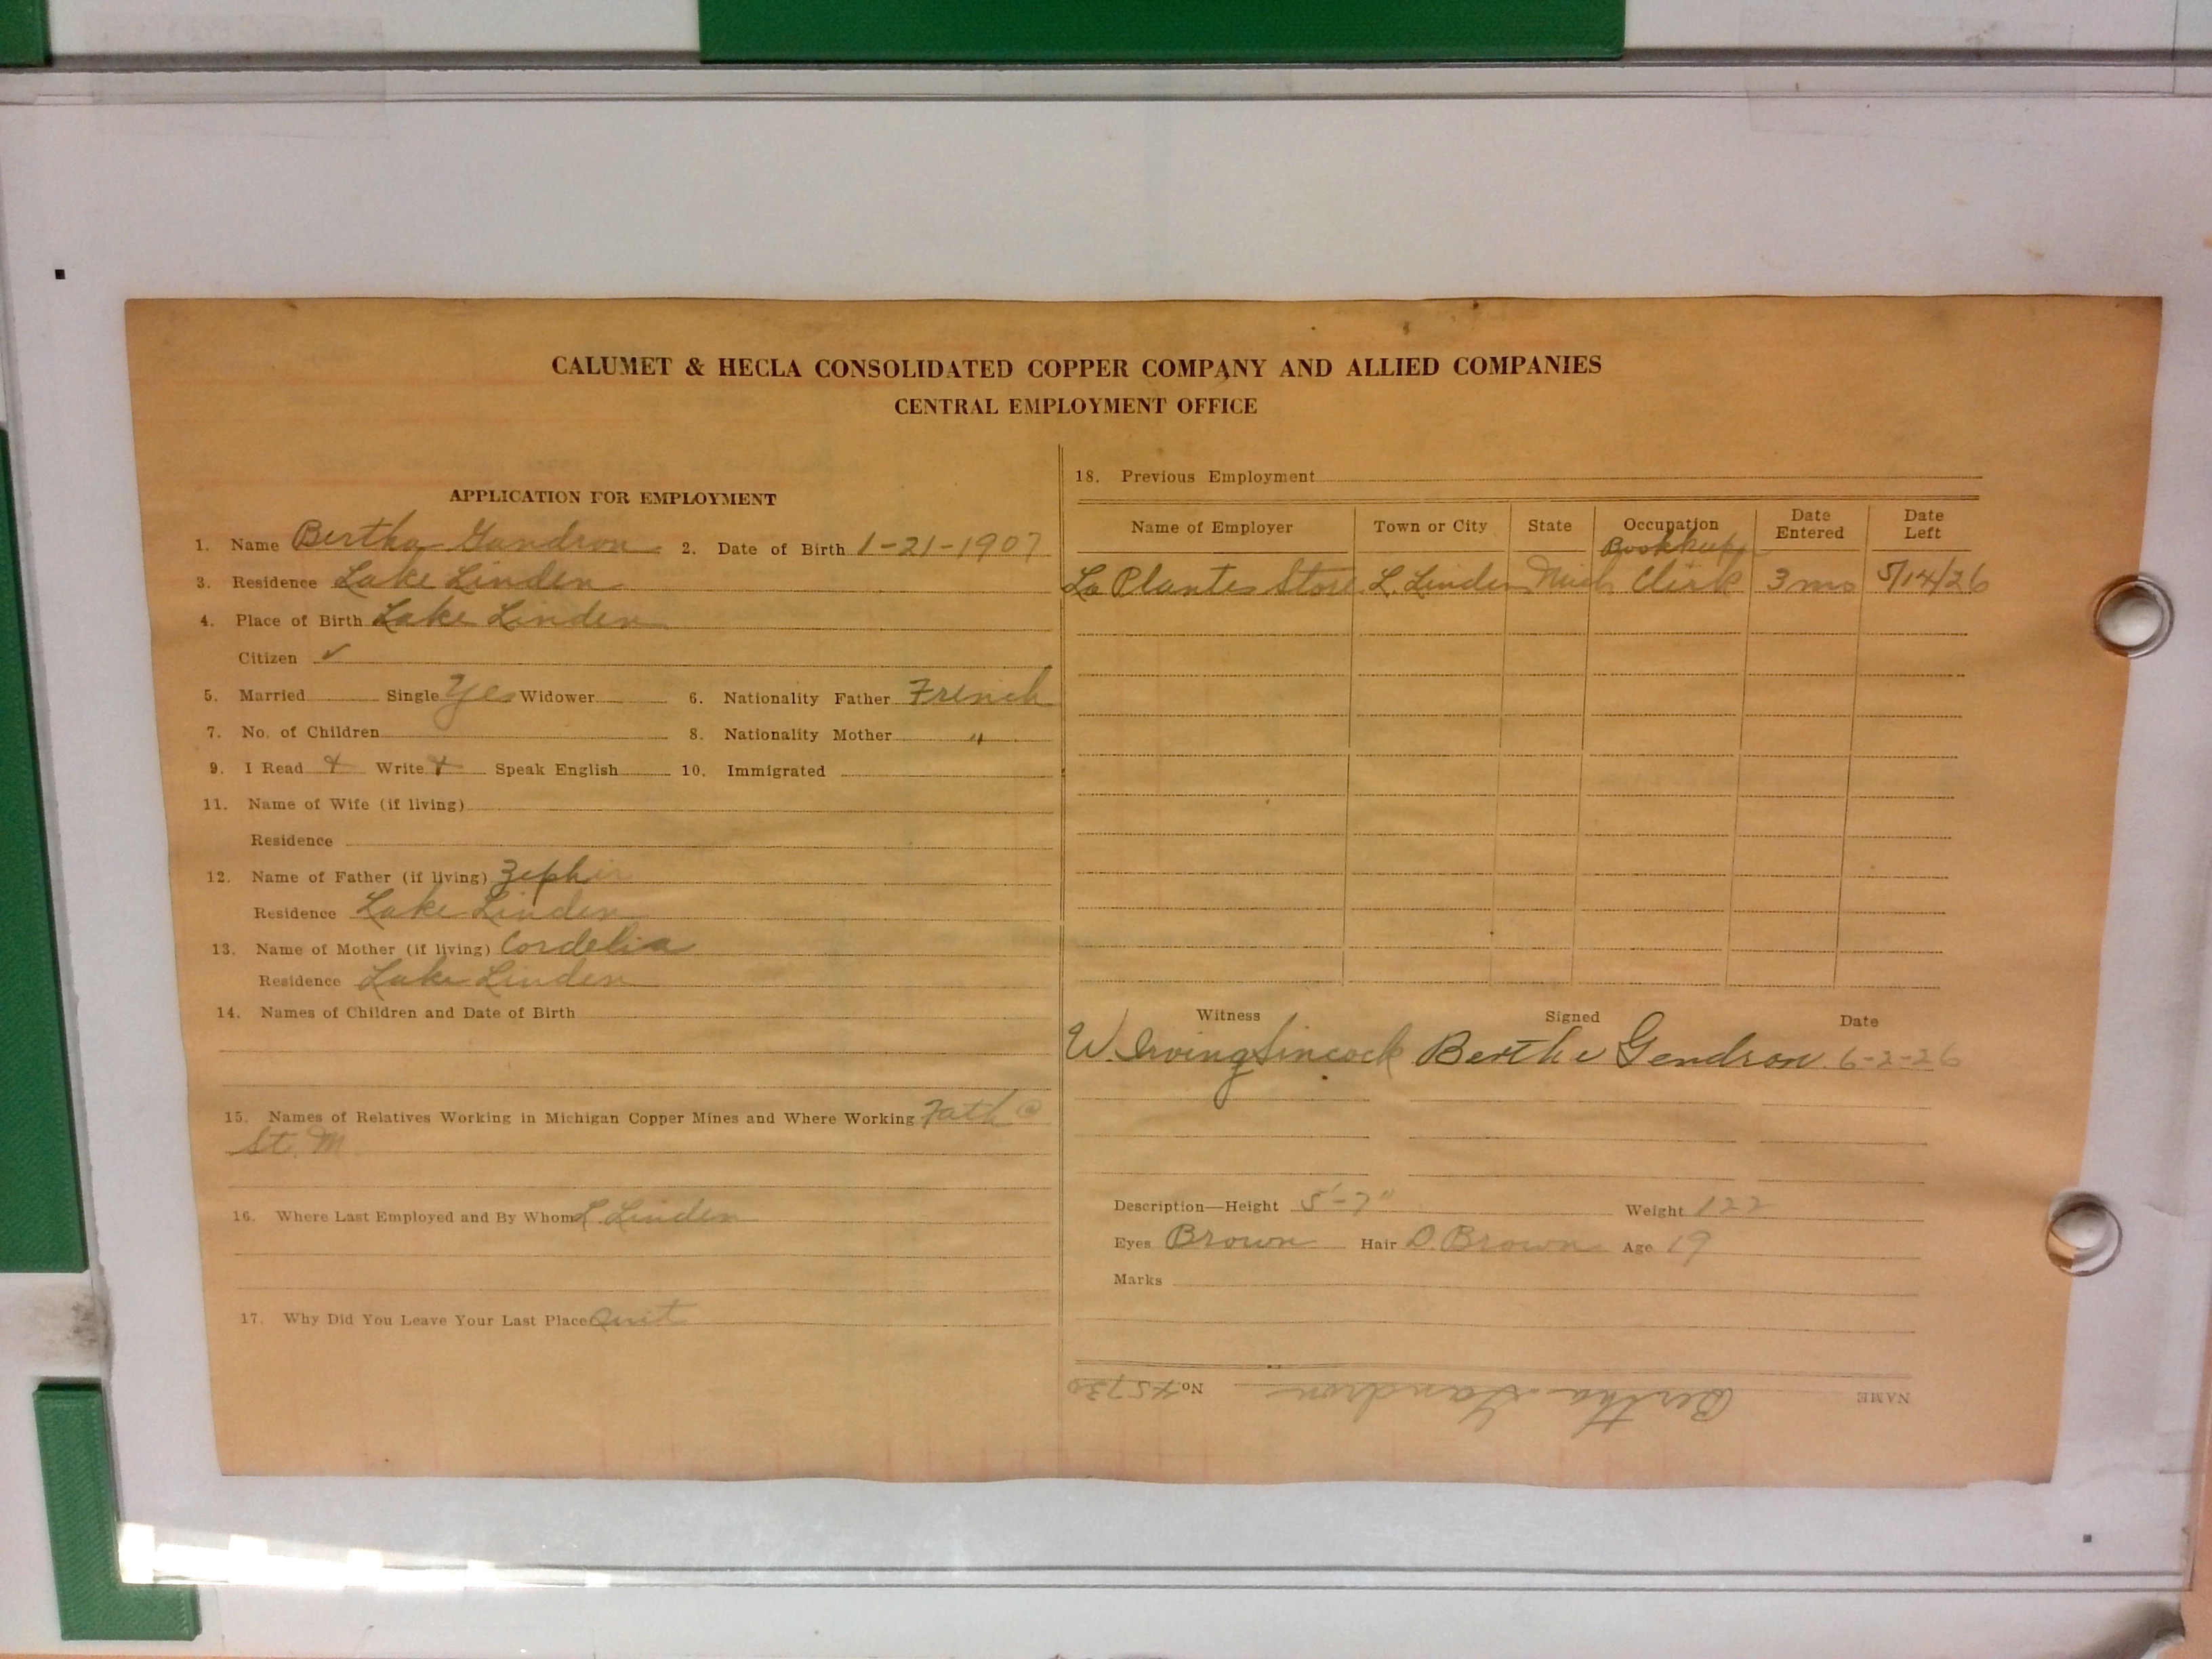 CALUMET & HECLA CONSOLIDATED COPPER COMPANY AND ALLIED COMPANIES
CENTRAL EMPLOYMENT OFFICE
APPLICATION FOR EMPLOYMENT
1. Name Bertha Gandron 2. Date of Birth 1-21-1907
3. Residence Lake Linden
4. Place of Birth Lake Linden
Citizen ✓
5. Married Single Yes Widower 6. Nationality Father French
7. No. of Children 8. Nationality Mother "
9. I Read x Write x Speak English 10. Immigrated
11. Name of Wife (if living)
Residence
12. Name of Father (if living) Zephir
Residence Lake Linden
13. Name of Mother (if living) Cordelia
Residence Lake Linden
14. Names of Children and Date of Birth
15. Names of Relatives Working in Michigan Copper Mines and Where Working Fath @
St. M
16. Where Last Employed and By Whom L. Linden
17. Why Did You Leave Your Last Place Quit
18. Previous Employment
Name of Employer Town or City State Occupation Date Entered Date Left
La Plantes Store L. Linden Mich Clerk 3 mo 5/14/26
Witness Signed Date
W. Irving Sincock Bertha Gendron 6-2-26
Description—Height 5'-7" Weight 122
Eyes Brown Hair D. Brown Age 19
Marks
NAME Bertha Gandron No. 45730